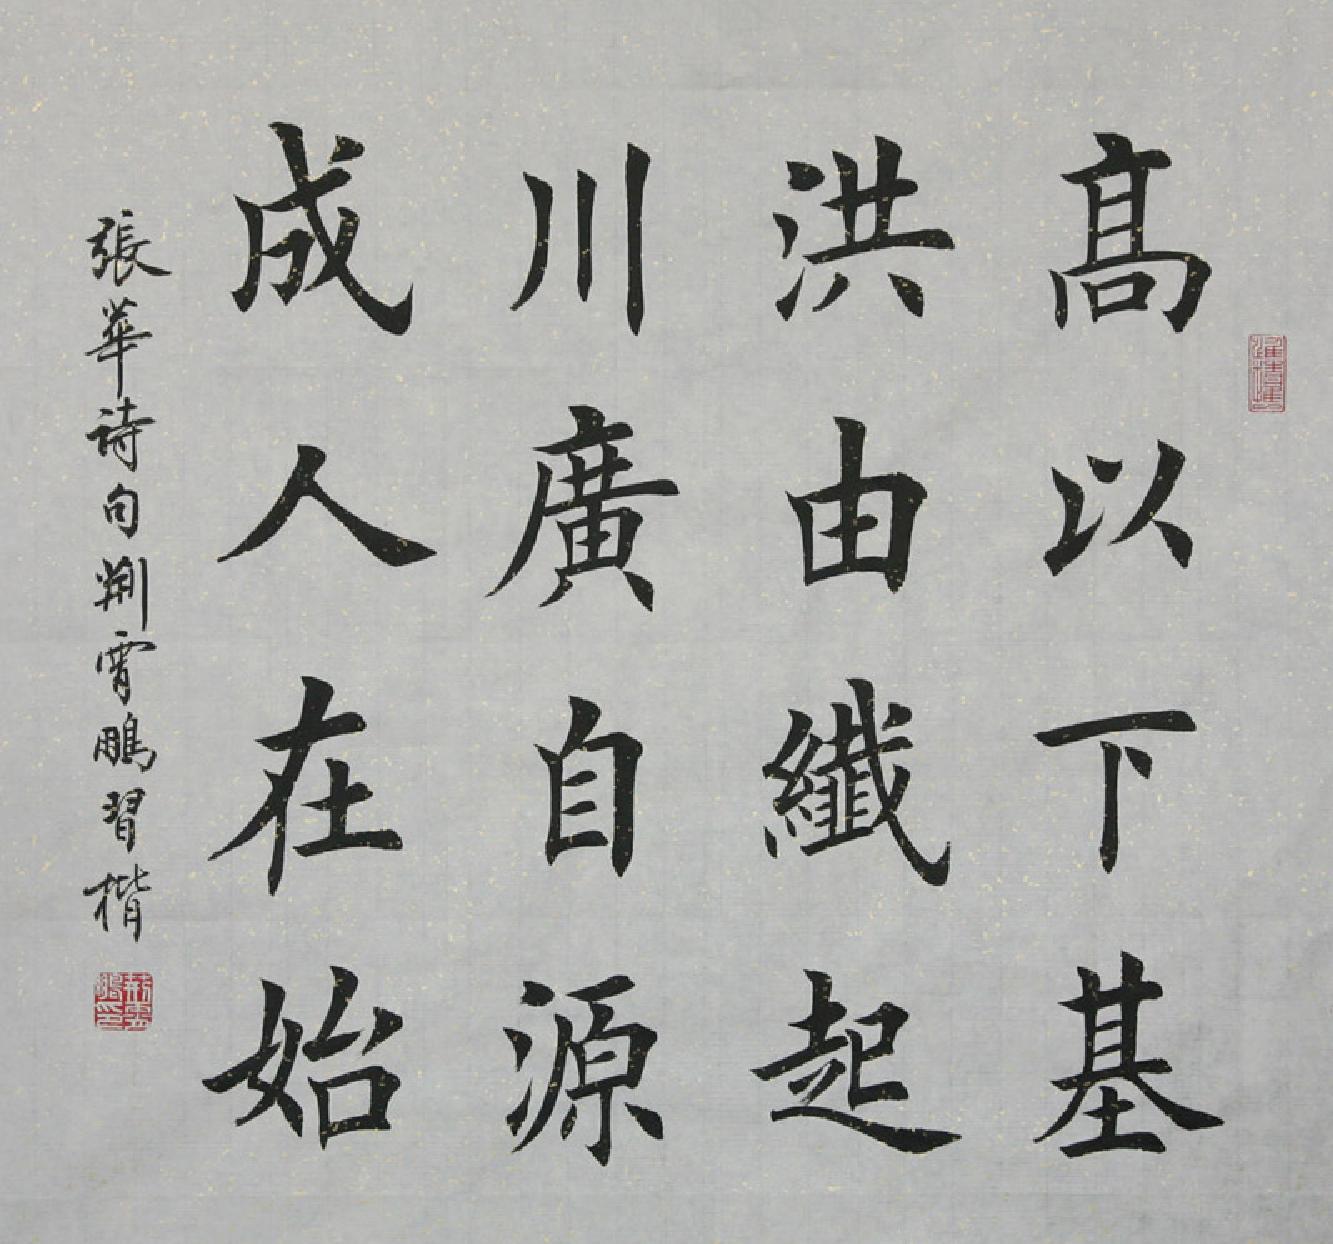 髙以下基
洪由纖起
川廣自源
成人在始
張華詩句荆霄鵬習楷